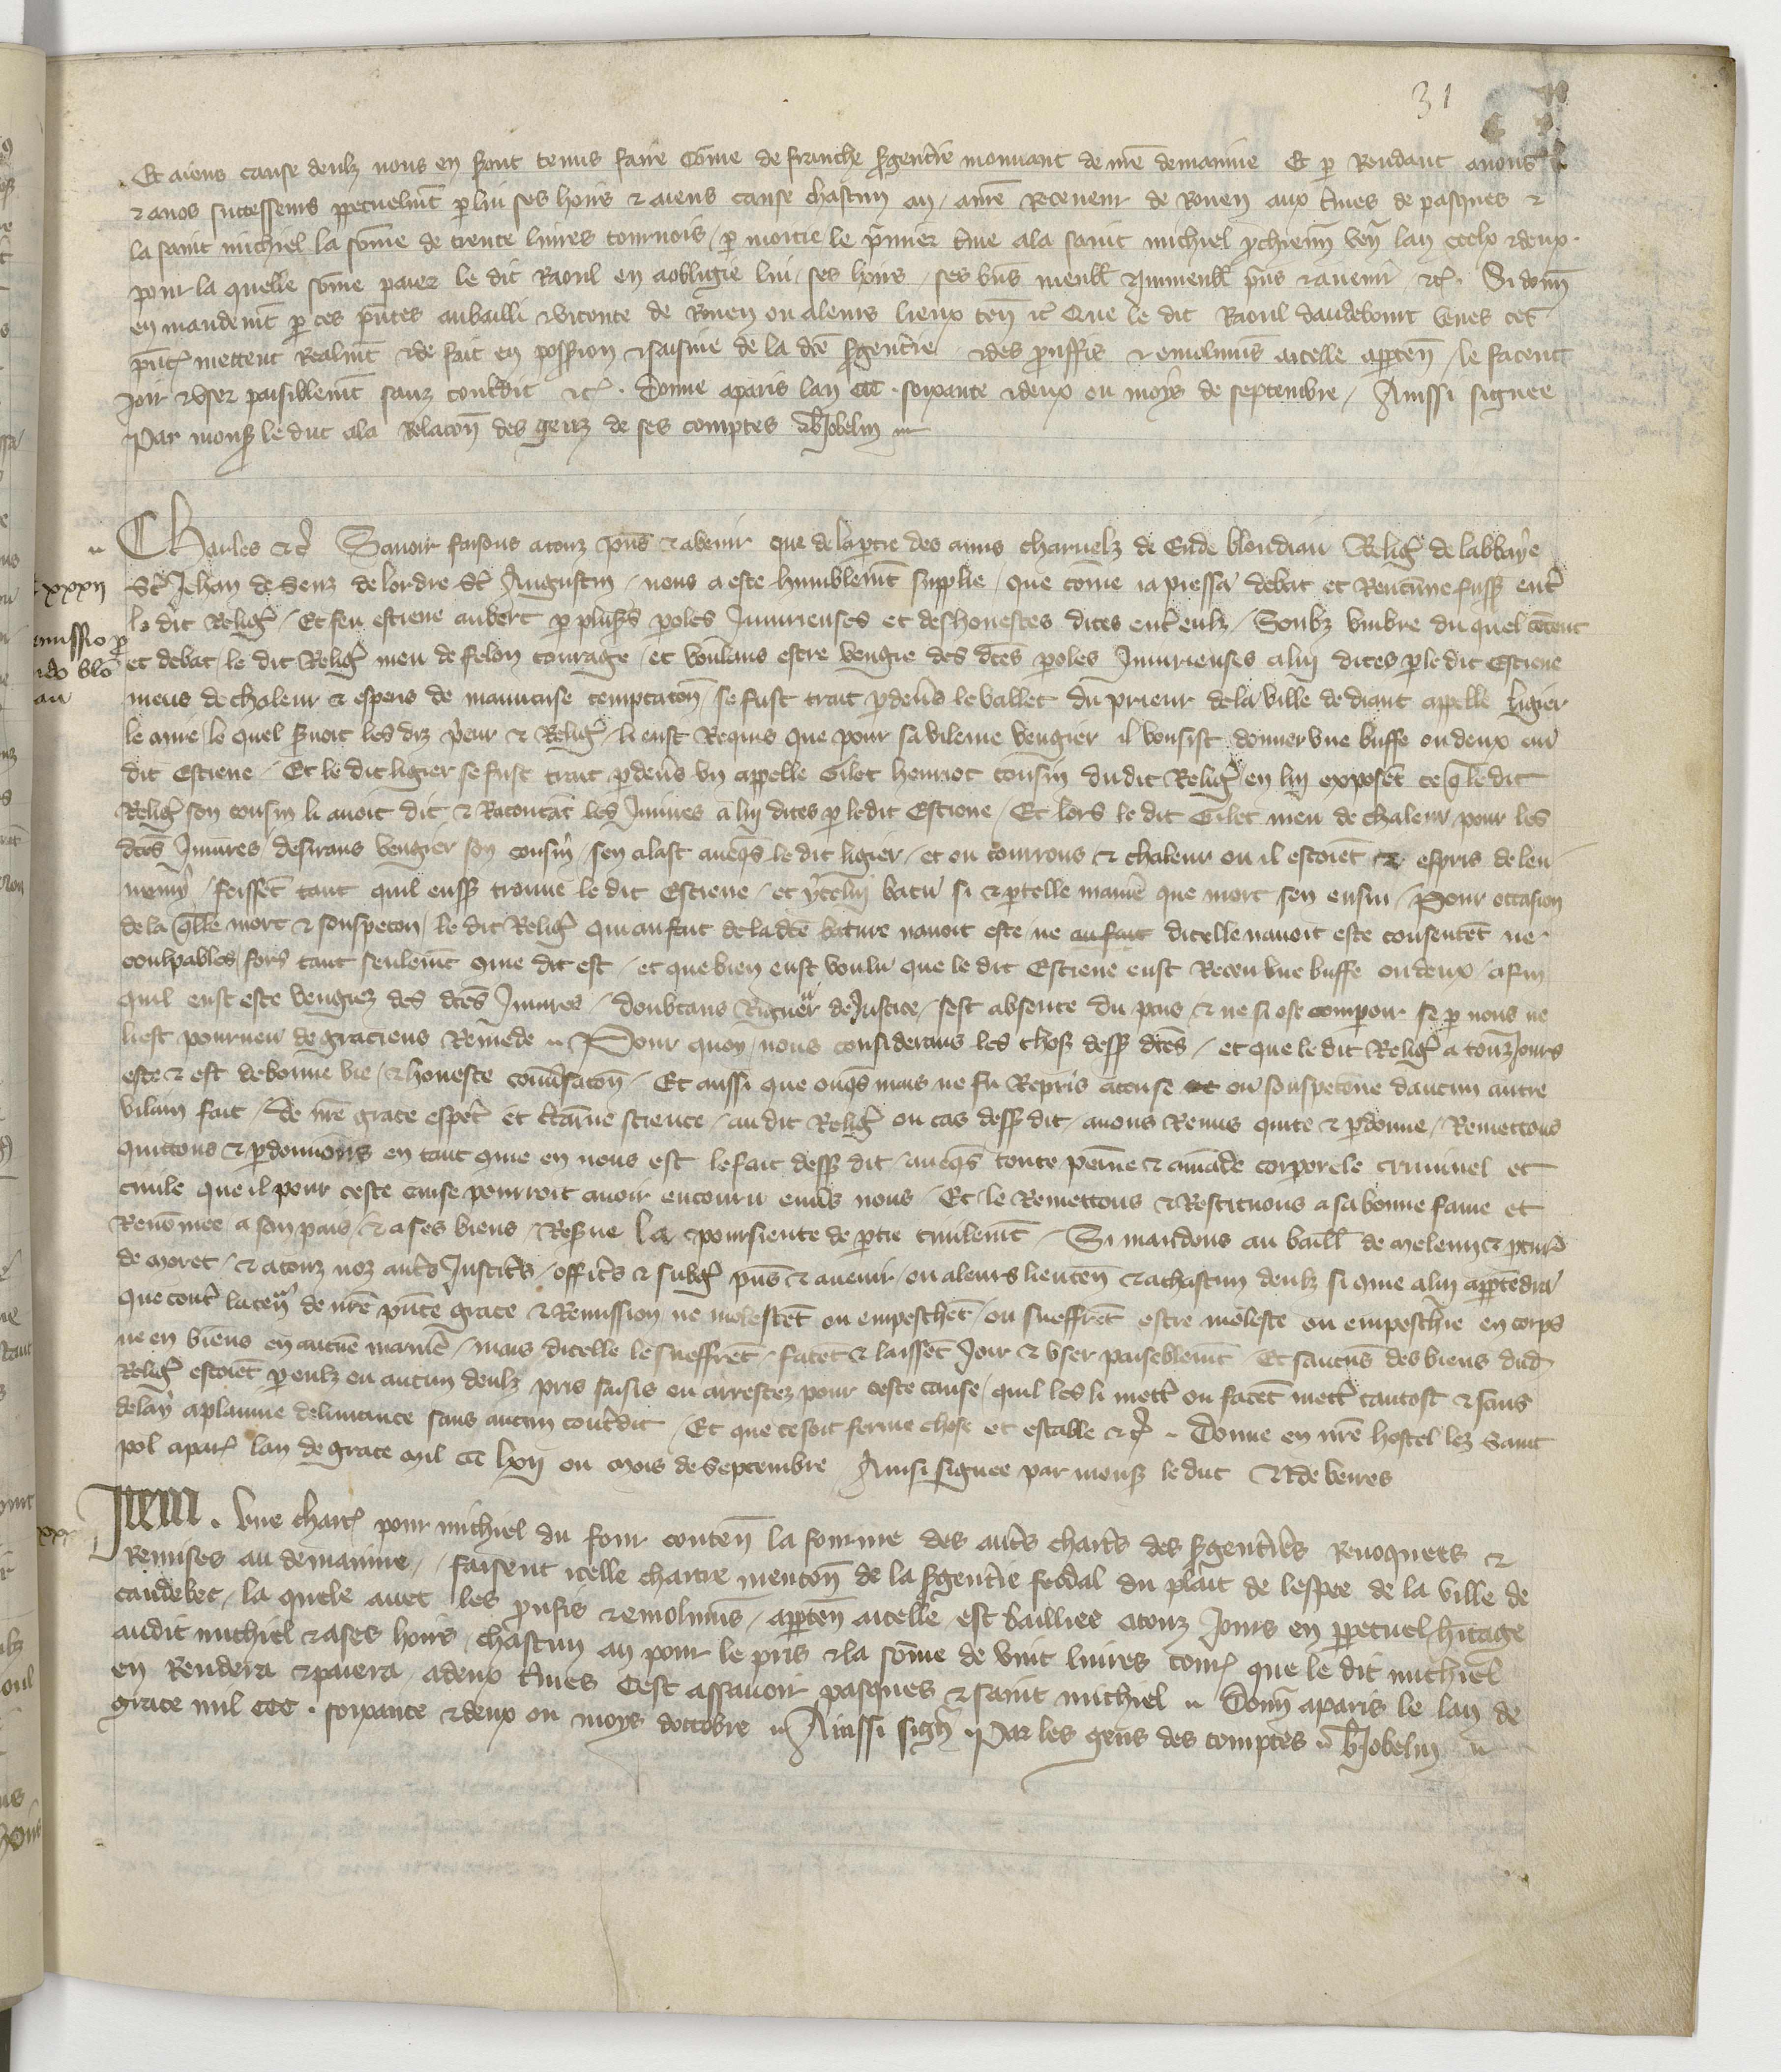 31
Et aiens cause deulz nous en sont tenus faire Cōme de franche sgent̄ie mouuant de nr̄e demaine Et p̱ Rendant a nous
⁊ a nos successeurs ppetuelmt̄ p̱ lui ses hoirs ⁊ aiens cause chascun an / a nr̄e Receueur de Rouen aux t̄mes de pasques ⁊
la saint michiel la sōme de trente liures tournois / p̱ moitie le p̄mier t̄me a la saint michiel p̱chienm̄ ven̄ lan ccclx ⁊ deux .
pour la quelle sōme paier le dit Raoul en a obligie lui / ses hoirs / ses biēs meubl̄ ⁊ Immeubl̄ p̄ns ⁊ auenir / ⁊c̄ . Si donn̄
en mandemt̄ p̱ ces p̄ntes au bailli ⁊ viconte de Rouen ou a leurs lieux ten̄ ⁊c̄ Que le dit Raoul daudebout veues ces
p̄nt̄ mettent Realmt̄ ⁊ de fait en possion ⁊ saisine de la dc̄e sgent̄ie ⁊ des prouffis ⁊ emolumēs a icelle apptēn / le facent
Joir ⁊ vser paisiblemt̄ sanz cont̄dit ⁊c̄ . Donne a paris lan ccc . soixante ⁊ deux ou moys de septembre / Ainssi signee
Par mons̄ le duc a la Relacōn des genz de ses comptes Jobelin
Charles ⁊c̄ Sauoir faisons a touz p̄ns ⁊ a venir que de la p̱tie des amis charnelz de Eude blondiau Relig̾ de labbaye
St̄ Jehan de Senz de lordre St̄ Augustin / nous a este humblemt̄ supplie / que cōme ia piessa debat et Rencune fuss̄ ent̄
le dit Relig̾ / Et feu estiene aubert p̱ plus̄s p̱oles Iniurieuses et deshonestes dites ent̄ eulz / Soubz vmbre du quel content
et debat / le dit Relig̾ meu de felon courage / et voulans estre vengie des dc̄es p̱oles Iniurieuses a lui dites p̱ le dit Estiene
meus de chaleur ⁊ espris de mauuaise temptacōn / se fust trait p̱deuēs le vallet du prieur de la ville de diant appelle Ligier
le amie / le quel s̄uoit les diz p̄eur ⁊ Relig̾ / li eust Requis que pour sa vilenie vengier il vousist donner vne buffe ou deux au
dit Estiene / Et le dit ligier se fust trait p̱deuēs vn appelle Gilet henriot cousin du dit Relig̾ en lui exposēt ce q̄ le dit
Relig̾ son cousin li auoit dit ⁊ Racontāt les Iniures a lui dites p̱ le dit Estiene / Et lors le dit Gilet meu de chaleur pour les
dc̄es Iniures / desirans vengier son cousin / sen alast auecqs̄ le dit ligier / et ou courrous ⁊ chaleur ou il estoiēt espris de len
nemy / feissēt tant quil euss̄ trouue le dit Estiene / et ycelui batu si ⁊ p̱ telle manie que mort sen ensui / Pour occasion
de la q̄lle mort ⁊ souspecon / le dit Relig̾ qui au fait de la dc̄e bature nauoit este ne au fait dicelle nauoit este consentēt ne
coulpables / fors tant seulemt̄ cōme dit est / et que bien eust voulu que le dit Estiene eust Receu vne buffe ou deux / afin
quil eust este vengiez des dc̄es Iniures / doubtans Rigueur de Justice / sest absente du pais ⁊ ne si ose comparoir se p̱ nous ne
li est pourueu de gracieus Remede Pour quoy / nous considerans les chos̄ dess̄ dc̄es / et que le dit Relig̾ a touz Jours
este ⁊ est de bonne vie / ⁊ honeste conūsacōn / Et aussi que onqs̄ mais ne fu Repris accuse ou souspeconne daucun autre
vilain fait / De nr̄e grace espēc et ct̄aine science / au dit Relig̾ ou cas dess̄ dit / auons Remis quite ⁊ p̱donne / Remettons
quittons ⁊ p̱donnons en tant cōme en nous est le fait dess̄ dit / auecqs̄ toute peine ⁊ amāde corporele criminel et
ciuile que il pour ceste cause pourroit auoir encouru enuēs nous / Et le Remettons ⁊ Restituons a sa bonne fame et
Renōmee / a son pais / ⁊ a ses biens / Res̄ue la poursieute de p̱tie ciuilemt̄ / Si mandons au baill̄ de meleun ⁊
de moret / ⁊ a touz noz aut̄s Justic̄s / offic̄s ⁊ subg̾ p̄ns ⁊ auenir / ou a leurs lieuten̄ ⁊ a chascun deulz si cōme a lui apptēdra
que cont̄ la ten̄r de nr̄e p̄nte grace ⁊ Remission ne molestēt ou empeschēt / ou sueffrēt estre moleste ou empeschie en corps
ne en biens en aucune manie / mais dicelle le sueffrēt / facēt ⁊ laissēt Joir ⁊ vser paiseblemt̄ / Et saucuns des biens dud̄
Relig̾ estoiēt p̱ eulz ou aucun deulz pris saisis ou arrestez pour ceste cause / quil les li mett̄ ou facēt mett̄ tantost ⁊ sans
delay a plainne deliurance sans aucun cont̄dit / Et que ce soit ferme chose et estable ⁊c̄ . Donne en nr̄e hostel lez Saint
pol a par̄ lan de grace mil ccc lxii ou mois de Septembre Ainsi signee par mons̄ le duc N de veires
Item . vne chart̄ pour michiel du four conten̄ la fourme des aut̄s chart̄s des sgent̄ies Reuoquees ⁊
Remises au demainne / faisent icelle chartre mencōn de la sgent̄ie feodal du plait de lespee de la ville de
caudebec / la quele auec les proufis ⁊ emolumēs / apptēn a icelle est bailliee a touz Jours en ppetuel hitage
audit michiel ⁊ a ses hoirs / chascun an pour le pris ⁊ la sōme de vint liures tour̄ que le dit michiel
en Rendera ⁊ paiera a deux t̄mes Cest assauoir pasques ⁊ saint michiel Donn̄ a paris le lan de
grace mil ccc . soixante ⁊ deux ou moys doctobre Ainssi sign̄ Par les gens des comptes Jobelin